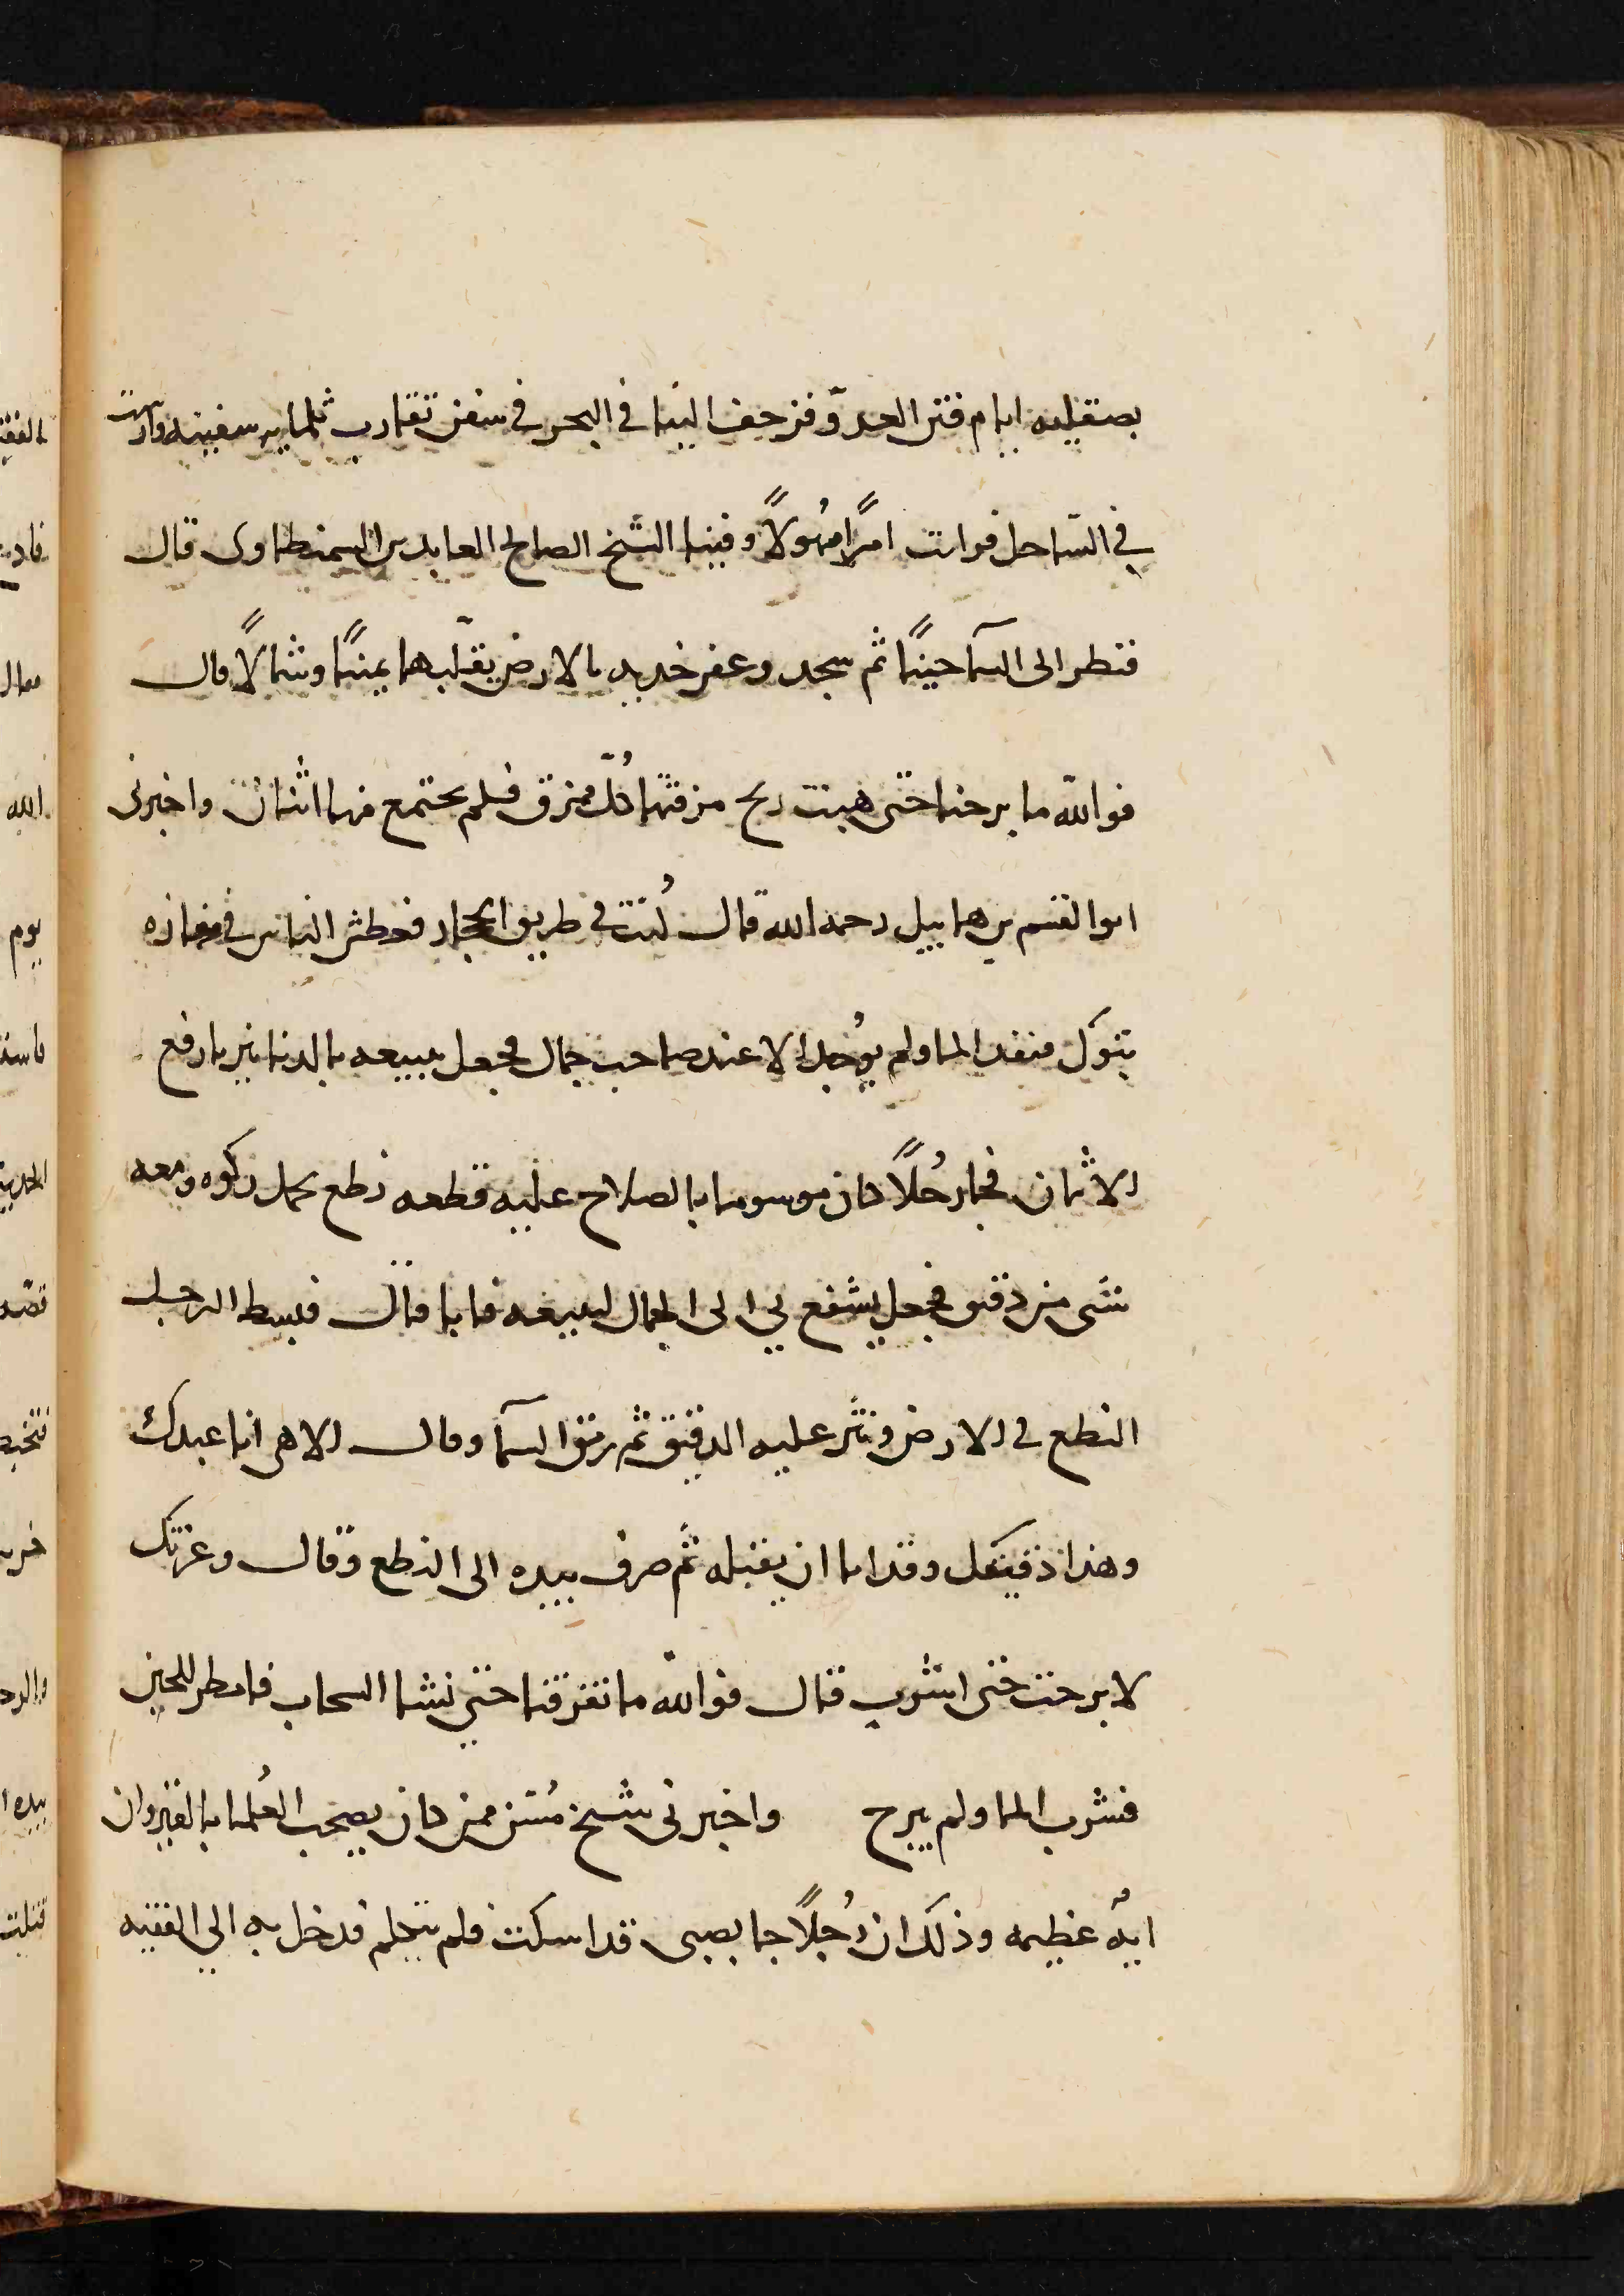 بصقليه ايام فتن العدوّ فزحف الينا في البحر في سفن تقارب ثلثمايه سفينه وارست
في السّاحل فرايت امرًا مهُولًا وفينا الشيخ الصالح العابد بن السمنطاوى قال
فنظر الى السمآ حينًا ثم سجد وعفر خديه بالارض يقلّبهما يمينًا وشمالًا قال
فوالله ما برحنا حتى هبت ريح مزقتها كُلّ ممزق فلم يجتمع منها اثنان واخبرنى
ابو القسم بن هابيل رحمه الله قال كُنت في طريق الحجاز فعطش الناس في مفازه
تبوك فنفد الما ولم يوُجد الا عند صاحب جمال فجعل يبيعه بالدنانير بارفع
الاثمان فجا رجُلًا كان موسوما بالصلاح عليه قطعه نطع يحمل ركوه ومعه
شى من دقيق فجعل يشفع بي الى الجمال ليبيعه فابا قال فبسط الرجل
النطع في الارض ونثر عليه الدقيق ثم رمق السمآ وقال الاهى انا عبدك
وهذا دقيقك وقد ابا ان يقبله ثم ضرب بيده الى النطع وقال وعزتك
لا برحت حتى اشرب قال فوالله ما تفرقنا حتى نشا السحاب فامطر للحين
فشرب الما ولم يبرح واخبرنى شيخ مُسن ممن كان يصحب العُلما بالقيروان
ايهٌ عظيمه وذلك ان رُجلًا جا بصبى قد اسكت فلم يتكلم فدخل به الي الفقيه